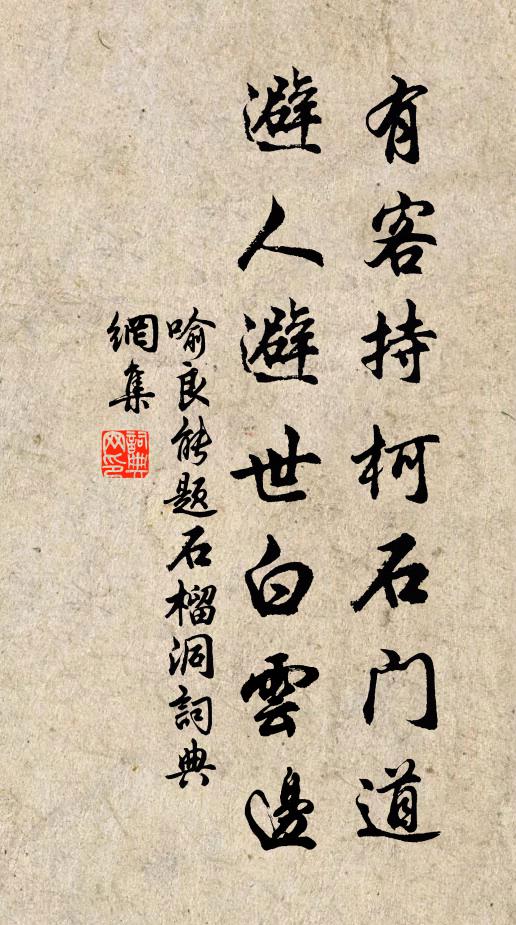 有客持柯石门道
避人避世白雲邊
喻良能题石榴洞詞典
網集
詞典
网印